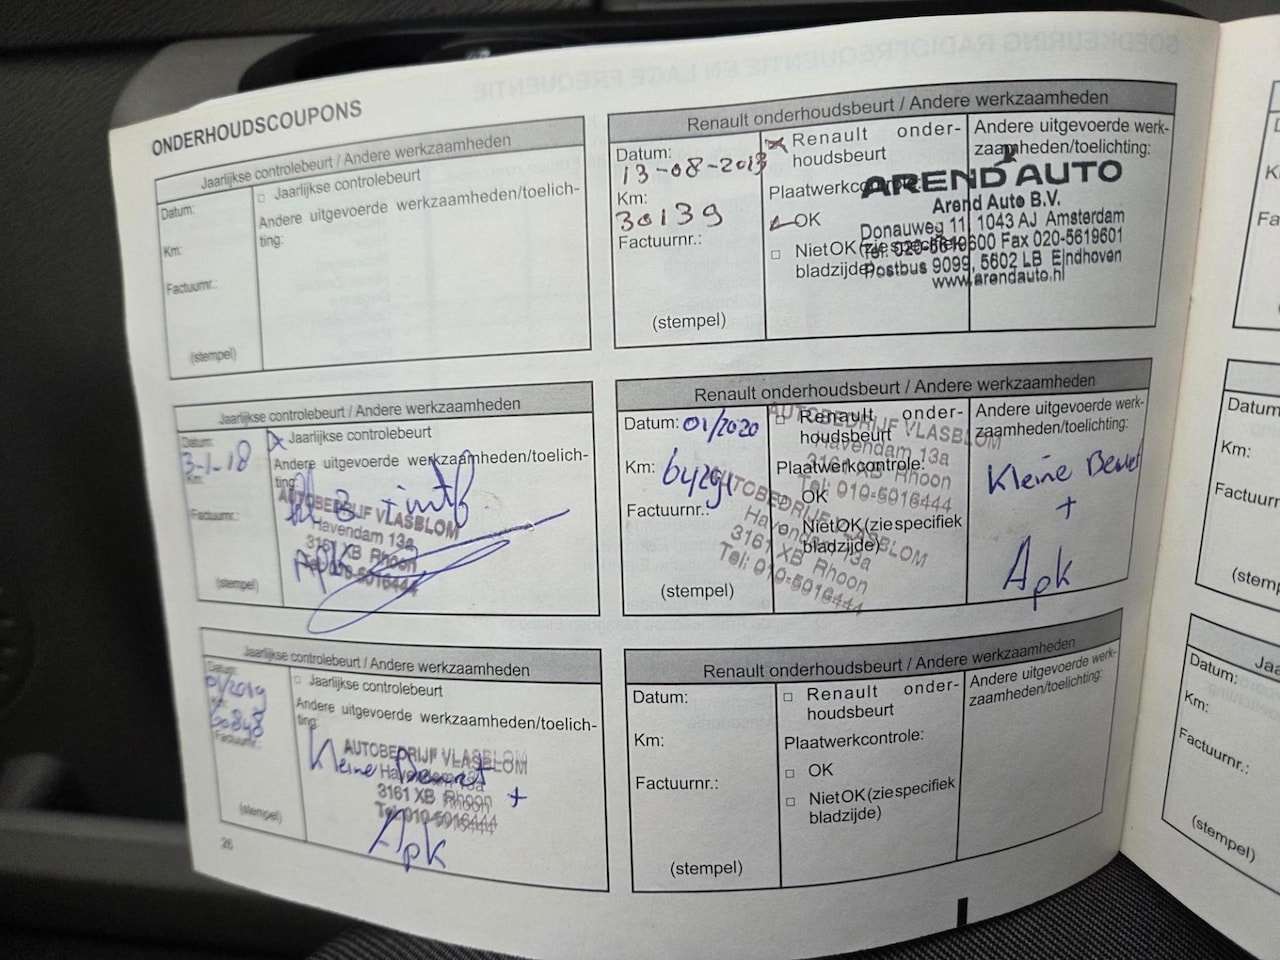 ONDERHOUDSCOUPONS
Jaarlijkse controlebeurt / Andere werkzaamheden
Datum:
Km:
Factuurnr.:
(stempel)
□ Jaarlijkse controlebeurt
Andere uitgevoerde werkzaamheden/toelich-
ting:
Renault onderhoudsbeurt / Andere werkzaamheden
Datum:
13-08-2013
Km:
30139
Factuurnr.:
(stempel)
Renault onder-
houdsbeurt
Plaatwerkcontrole:
OK
□ Niet OK (zie specifiek
bladzijde)
Andere uitgevoerde werk-
zaamheden/toelichting:
AREND AUTO
Arend Auto B.V.
Donauweg 11, 1043 AJ Amsterdam
Tel. 020-5619600 Fax 020-5619601
Postbus 9099, 5602 LB Eindhoven
www.arendauto.nl
Jaarlijkse controlebeurt / Andere werkzaamheden
Datum:
3-1-18
Km:
Factuurnr.:
(stempel)
Jaarlijkse controlebeurt
Andere uitgevoerde werkzaamheden/toelich-
ting:
AUTOBEDRIJF VLASBLOM
Havendam 13a
3161 XB Rhoon
Tel: 010-5016444
Apk
Renault onderhoudsbeurt / Andere werkzaamheden
Datum: 01/2020
Km:
Factuurnr.:
(stempel)
□ Renault onder-
houdsbeurt
Plaatwerkcontrole:
OK
Niet OK (zie specifiek
bladzijde)
AUTOBEDRIJF VLASBLOM
Havendam 13a
3161 XB Rhoon
Tel: 010-5016444
AUTOBEDRIJF VLASBLOM
Havendam 13a
3161 XB Rhoon
Tel: 010-5016444
Andere uitgevoerde werk-
zaamheden/toelichting:
Kleine Beurt
+
Apk
Jaarlijkse controlebeurt / Andere werkzaamheden
Datum:
01/2019
60848
Factuurnr.:
(stempel)
□ Jaarlijkse controlebeurt
Andere uitgevoerde werkzaamheden/toelich-
ting:
AUTOBEDRIJF VLASBLOM
Havendam 13a
3161 XB Rhoon
Tel: 010-5016444
Kleine Beurt +
Apk
26
Renault onderhoudsbeurt / Andere werkzaamheden
Datum:
Km:
Factuurnr.:
(stempel)
□ Renault onder-
houdsbeurt
Plaatwerkcontrole:
□ OK
□ Niet OK (zie specifiek
bladzijde)
Andere uitgevoerde werk-
zaamheden/toelichting:
Datum:
Km:
Factuurnr.:
(stemp
Jaa
Datum:
Km:
Factuurnr.:
(stempel)